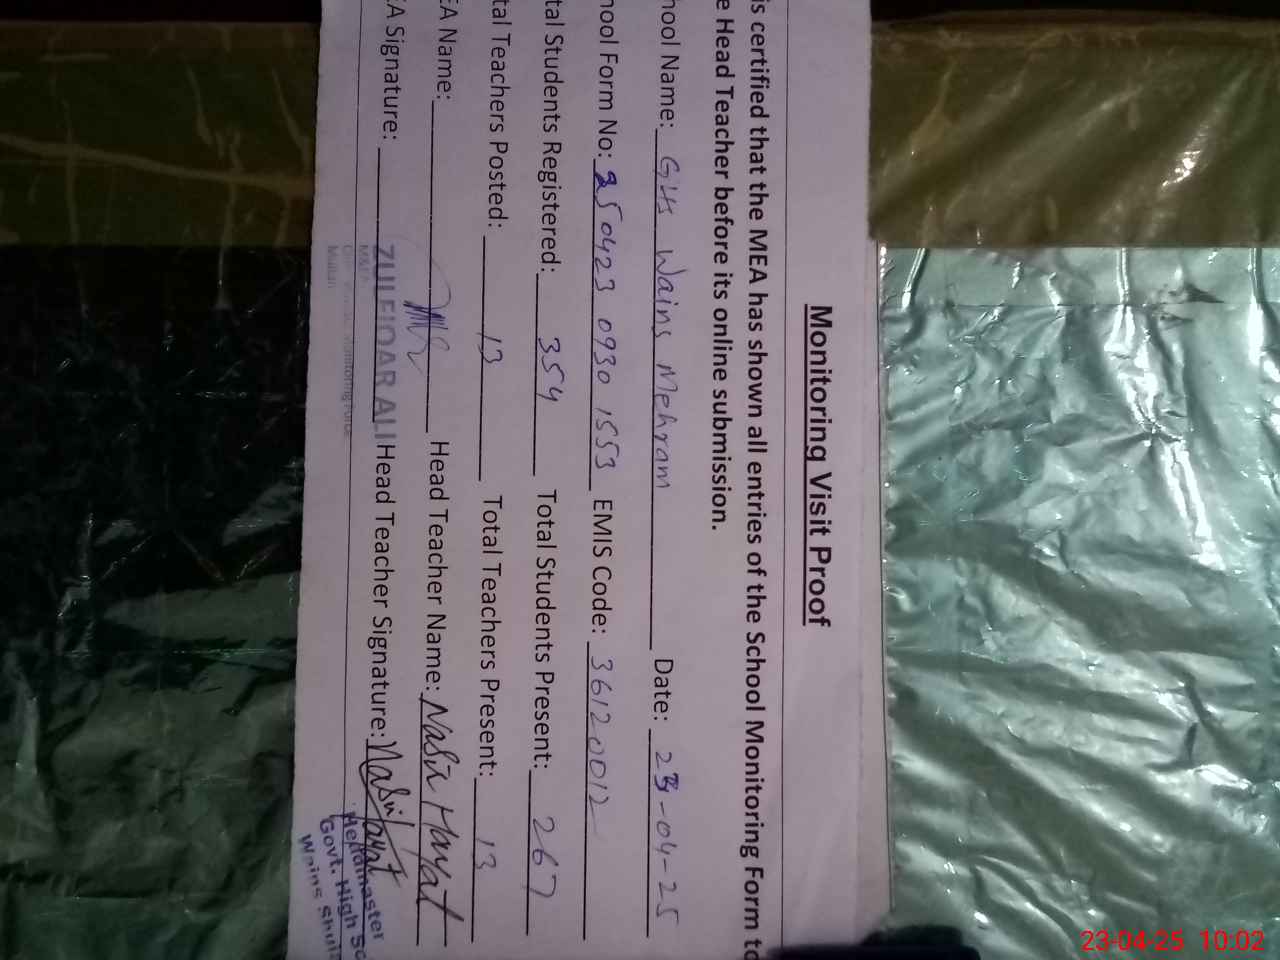 Monitoring Visit Proof
is certified that the MEA has shown all entries of the School Monitoring Form to
e Head Teacher before its online submission.
hool Name: GHS Wains Mehram Date: 23-04-25
hool Form No: 250423 0930 1553 EMIS Code: 36120012
tal Students Registered: 354 Total Students Present: 267
tal Teachers Posted: 13 Total Teachers Present: 13
EA Name: Head Teacher Name: Nasir Hayat
EA Signature: ZULFIQAR ALI Head Teacher Signature: Nasir Hayat
M&E
Monitoring Force
Multan
Headmaster
Govt. High Sc
Wains
23-04-25 10:02